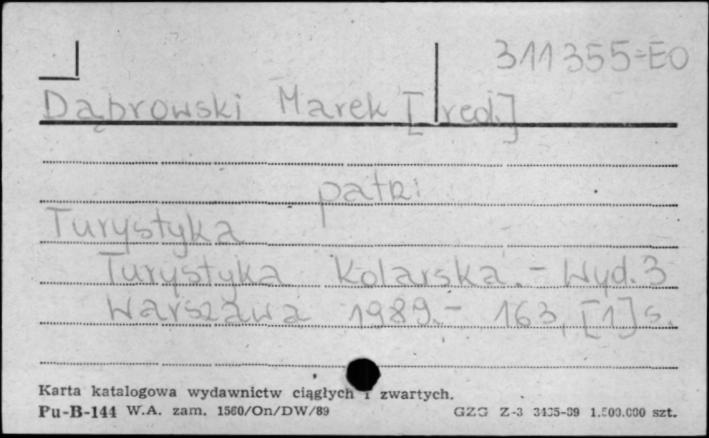 311355-EO
Dąbrowski Marek [red.]
patrz:
Turystyka
Turystyka Kolarska. - Wyd. 3
Warszawa 1989. - 163, [1] s.
Karta katalogowa wydawnictw ciągłych i zwartych.
Pu-B-144 W.A. zam. 1560/On/DW/89 GZG Z-3 3435-89 1.500.000 szt.